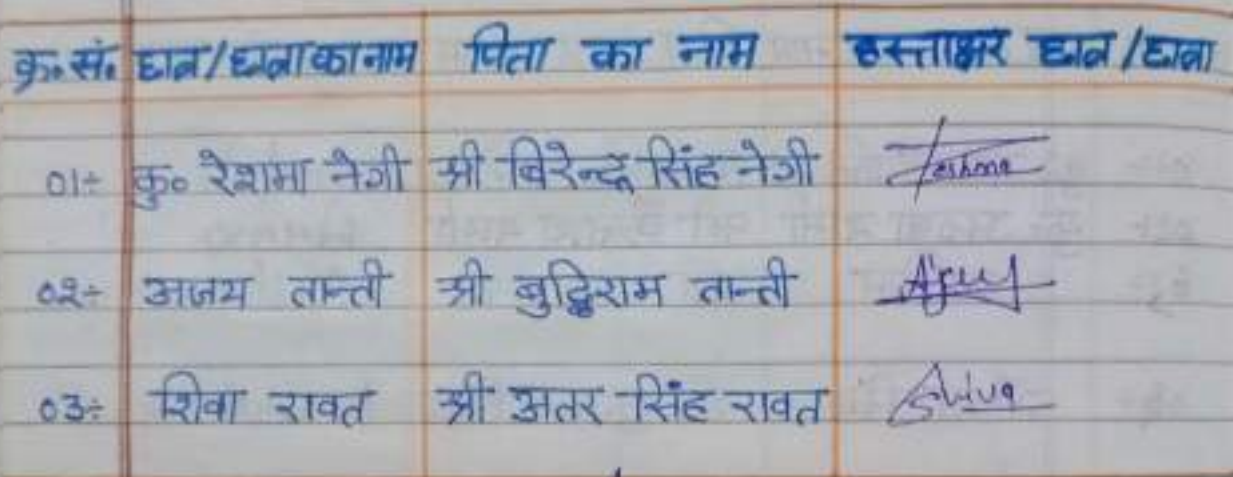 क्र०सं० छात्र/छात्रा का नाम पिता का नाम हस्ताक्षर छात्र/छात्रा
01÷ कु० रेशमा नेगी श्री विरेन्द्र सिंह नेगी Reshma
02÷ अजय तान्ती श्री बुद्धिराम तान्ती Ajay
03÷ शिवा रावत श्री अतर सिंह रावत Shiva